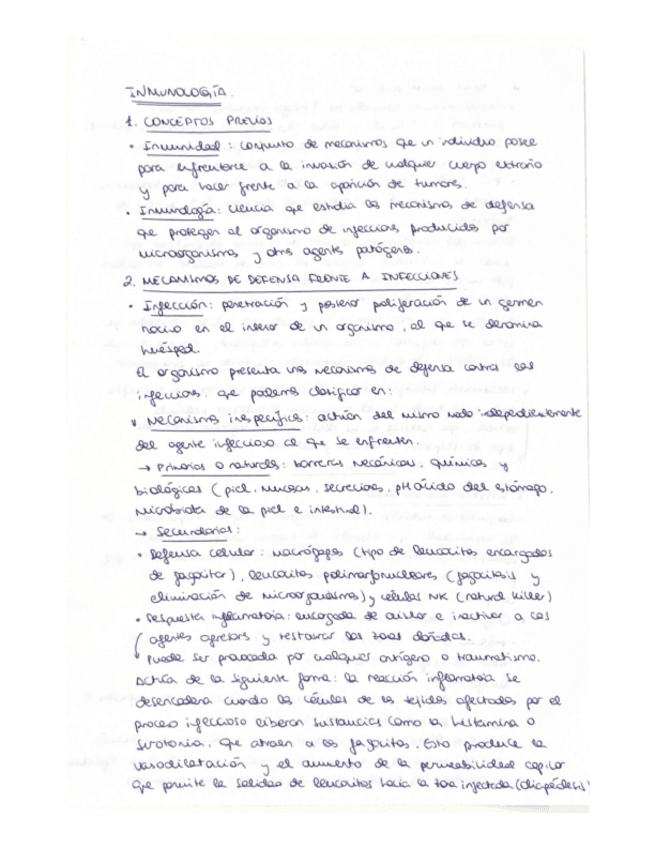 INMUNOLOGÍA.
1. CONCEPTOS PREVIOS
• Inmunidad: conjunto de mecanismos que un individuo posee
para enfrentarse a la invasión de cualquier cuerpo extraño
y para hacer frente a la aparición de tumores.
• Inmunología: ciencia que estudia los mecanismos de defensa
que protegen al organismo de infecciones producidas por
microorganismos y otros agentes patógenos.
2. MECANISMOS DE DEFENSA FRENTE A INFECCIONES
• Infección: penetración y posterior proliferación de un germen
nocivo en el interior de un organismo, al que se denomina
huésped.
El organismo presenta unos mecanismos de defensa contra las
infecciones, que podemos clasificar en:
Mecanismos inespecíficos: actúan del mismo modo independientemente
del agente infeccioso al que se enfrenten.
→ Primarios o naturales: barreras mecánicas, químicas y
biológicas (piel, mucosas, secreciones, pH ácido del estómago,
microbiota de la piel e intestinal).
→ Secundarios:
• Defensa celular: macrófagos (tipo de leucocitos encargados
de fagocitar), leucocitos polimorfonucleares (fagocitosis y
eliminación de microorganismos) y células NK (natural killer)
• Respuesta inflamatoria: encargada de aislar e inactivar a los
agentes agresores y restaurar las zonas dañadas.
Puede ser provocada por cualquier antígeno o traumatismo.
Actúa de la siguiente forma: la reacción inflamatoria se
desencadena cuando las células de los tejidos afectados por el
proceso infeccioso liberan sustancias como la histamina o
serotonina, que atraen a los fagocitos. Esto produce la
vasodilatación y el aumento de la permeabilidad capilar
que permite la salida de leucocitos hacia la zona infectada (diapédesis)